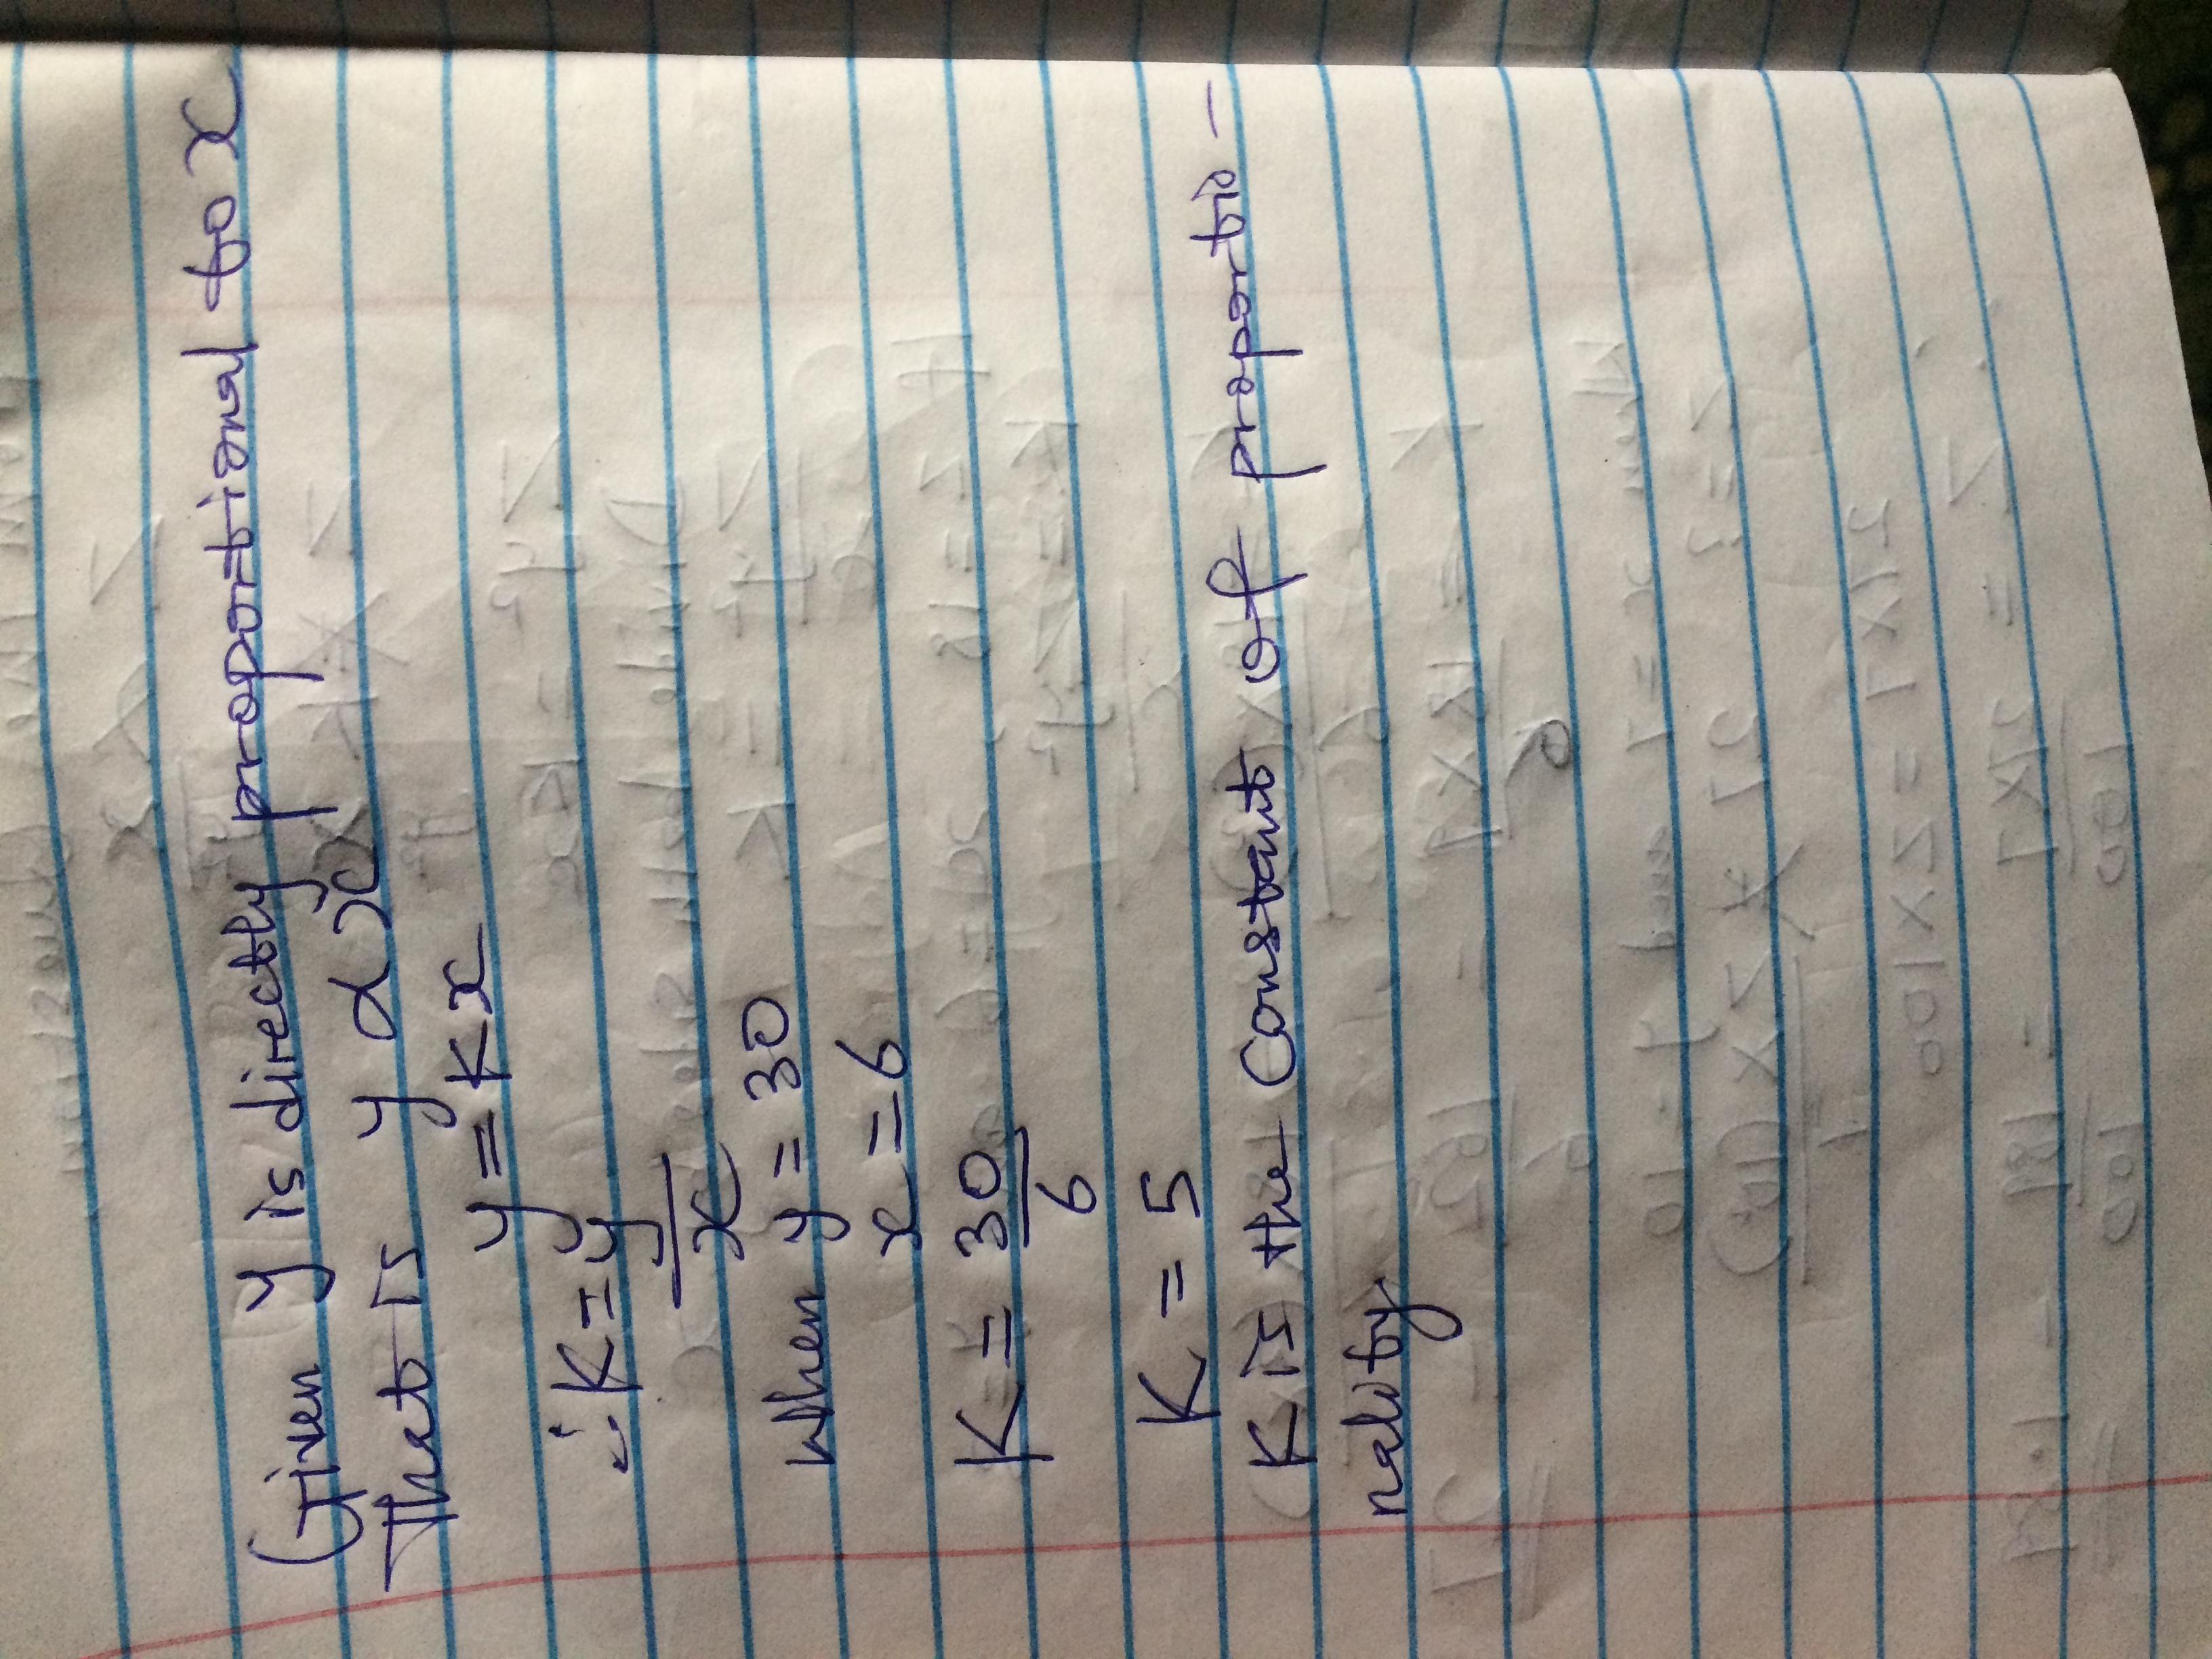 Given y is directly proportional to x
That is y α x
y = Kx
∴ K = y/x
When y = 30
x = 6
K = 30/6
K = 5
K is the Constant of proportio-
nality